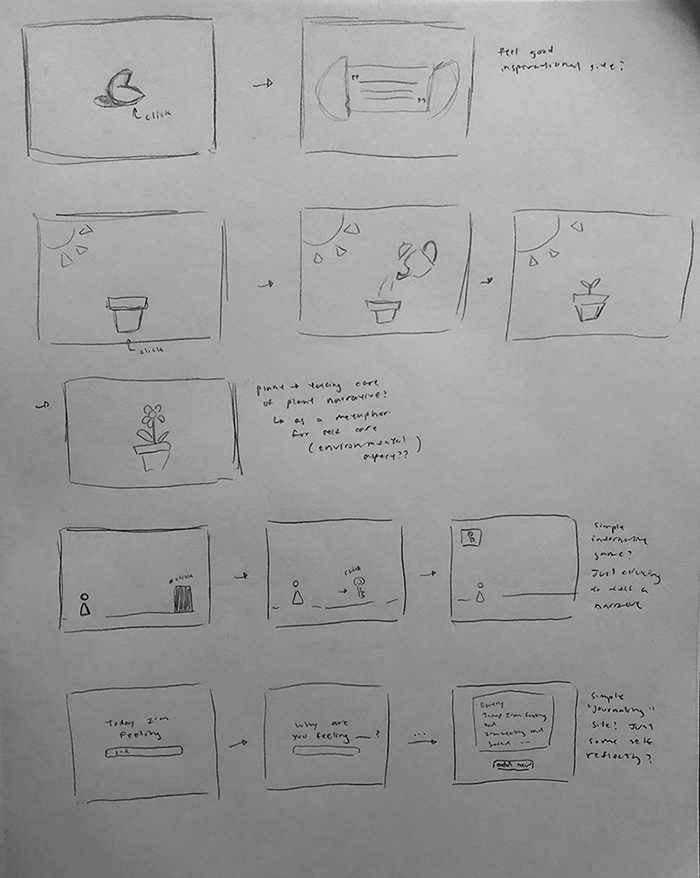 feel good
inspirational site?
click
click
plant → taking care
of plant narrative?
↳ as a metaphor
for self care
(environmental
aspect??)
click
click
simple
interactive
game?
Just clicking
to tell a
narrative
Today I'm
feeling
sad
Why are
you feeling __?
...
Today I'm feeling
sad
add new
simple
"journaling"
site? Just
some self
reflecting?